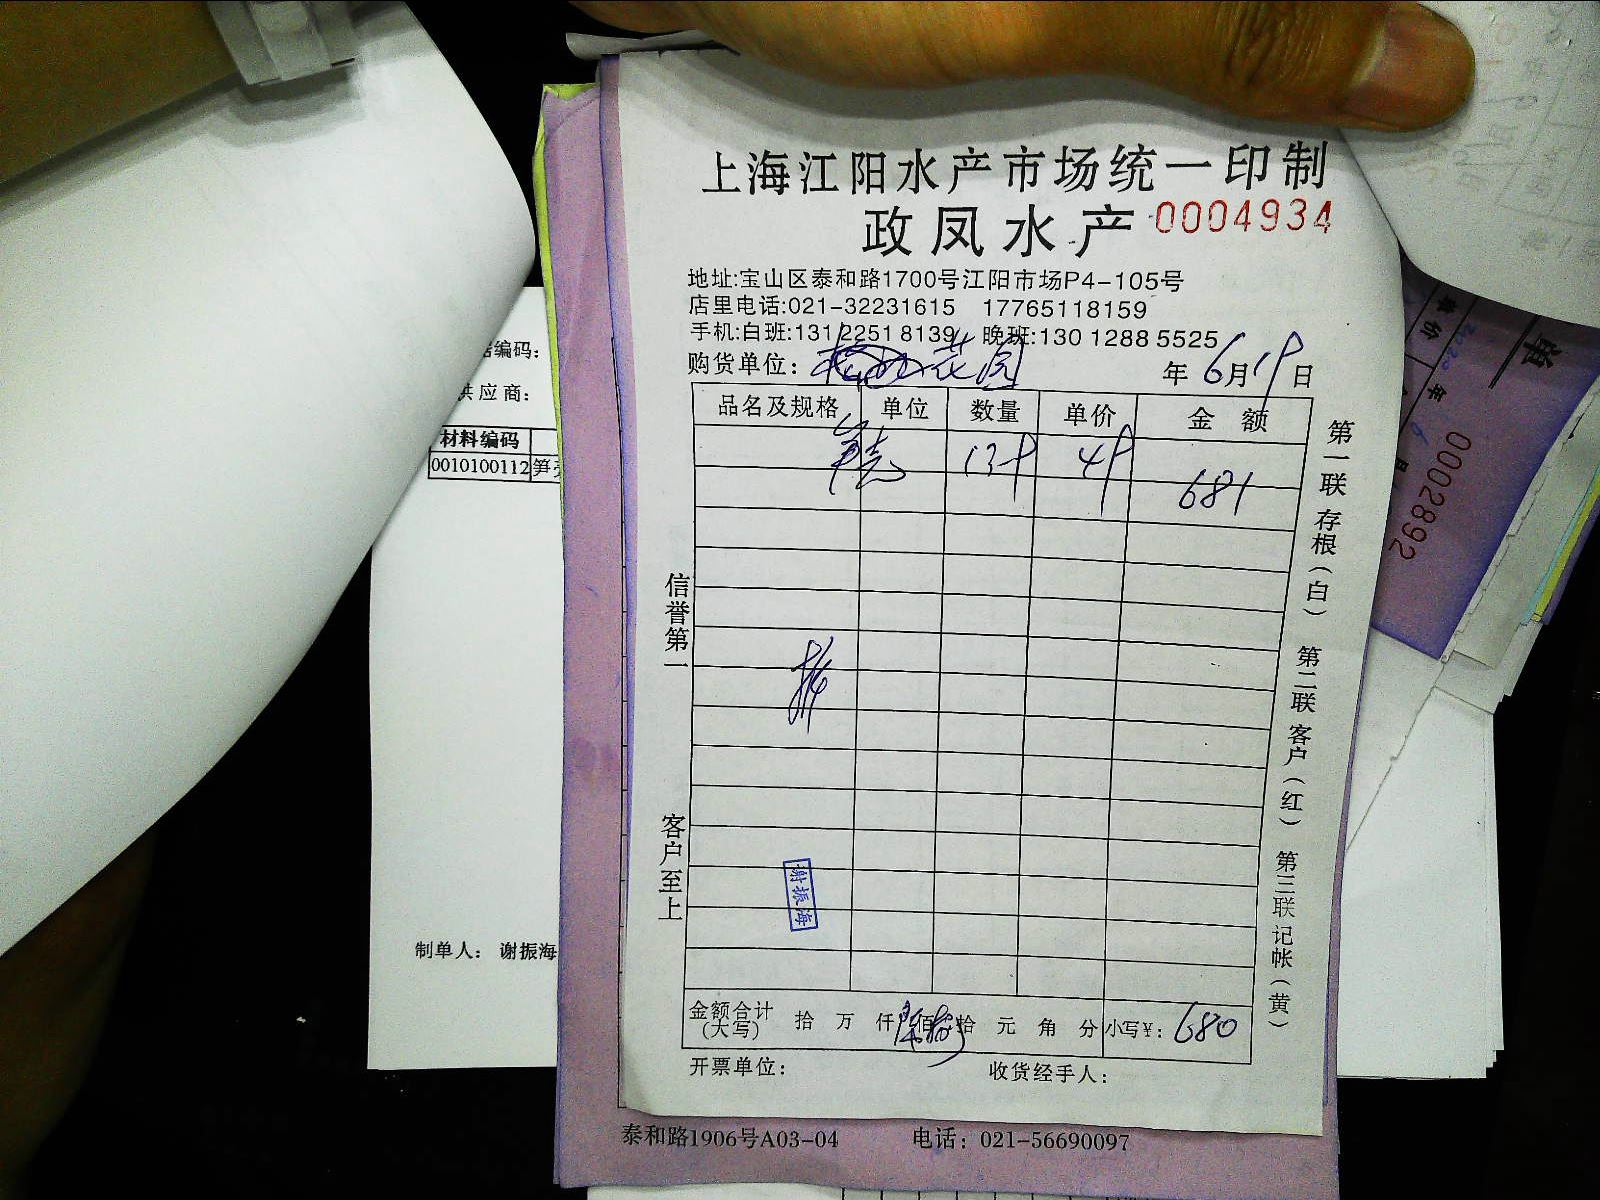 上海江阳水产市场统一印制
政凤水产 0004934
地址:宝山区泰和路1700号江阳市场P4-105号
店里电话:021-32231615 17765118159
手机:白班:131 2251 8139 晚班:130 1288 5525
购货单位: 花园 年 6月19日
品名及规格 单位 数量 单价 金额
139 49 681
信誉第一
客户至上
谢振海
第一联 存根(白) 第二联 客户(红) 第三联 记帐(黄)
金额合计(大写) 拾 万 仟 佰 拾 元 角 分 小写¥: 680
开票单位: 收货经手人:
泰和路1906号A03-04 电话: 021-56690097
编码:
供应商:
材料编码
0010100112 笋
制单人: 谢振海
0002892
单价
单